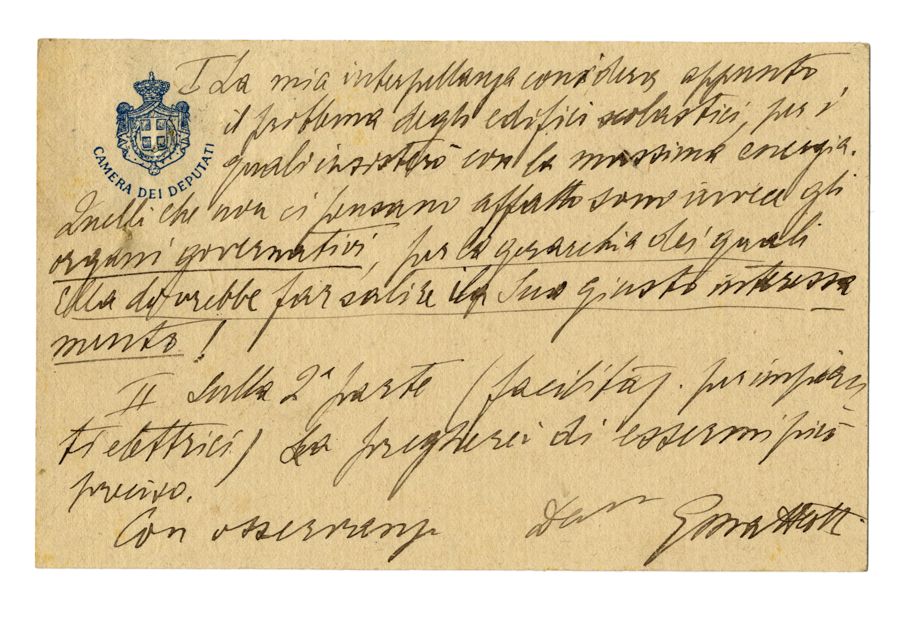 CAMERA DEI DEPUTATI
I La mia interpellanza considera appunto
il problema degli edifici scolastici, per i
quali insisterò con la massima energia.
Quelli che non ci pensano affatto sono invece gli
organi governativi, per la gerarchia dei quali
Ella dovrebbe far salire il Suo giusto interessa
mento!
II Sulla 2ª parte (facilitaz. per impian
ti elettrici) La pregherei di essermi più
preciso.
Con osservanza
GMatteotti